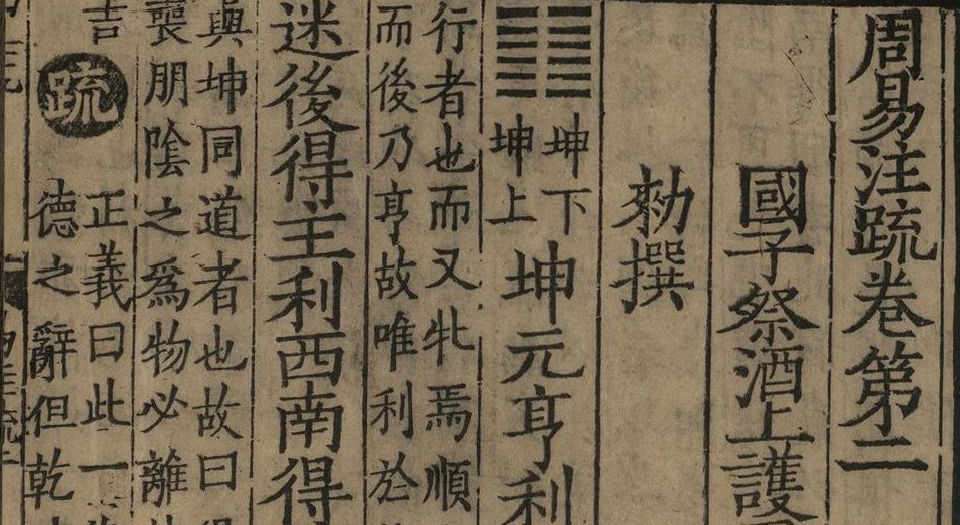 周易注疏卷第二
國子祭酒上護
勑撰
䷁坤下坤上坤元亨利
行者也而又牝焉順
而後乃亨故唯利於
迷後得主利西南得
與坤同道者也故曰
喪朋陰之為物必離
吉疏
正義曰此一
德之辭但乾